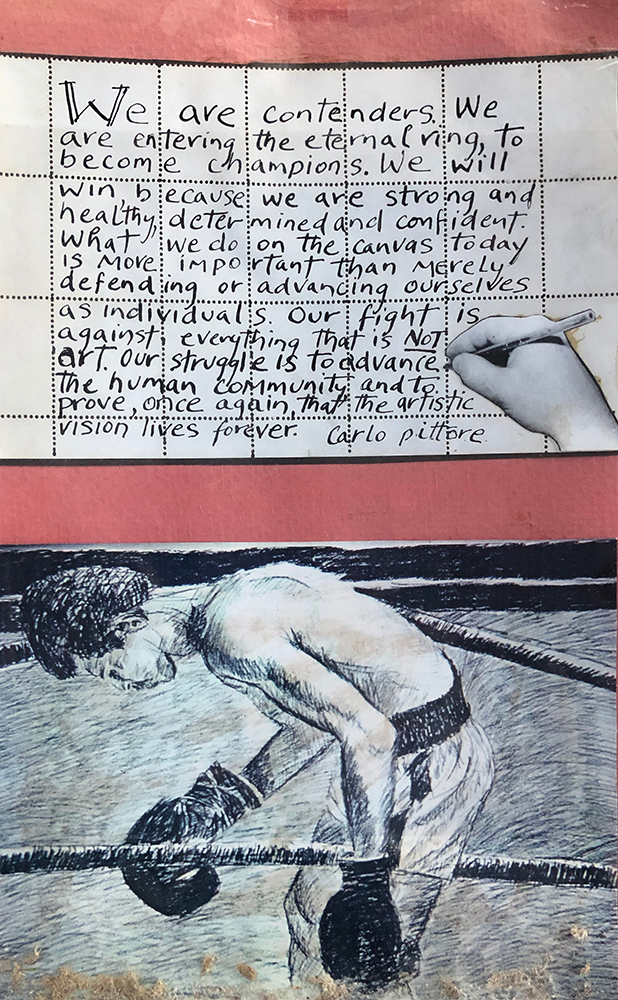 We are contenders. We
are entering the eternal ring, to
become champions. We will
win because we are strong and
healthy, determined and confident.
What we do on the canvas today
is more important than merely
defending or advancing ourselves
as individuals. Our fight is
against everything that is NOT
art. Our struggle is to advance
the human community and to
prove, once again, that the artistic
vision lives forever. Carlo Pittore.